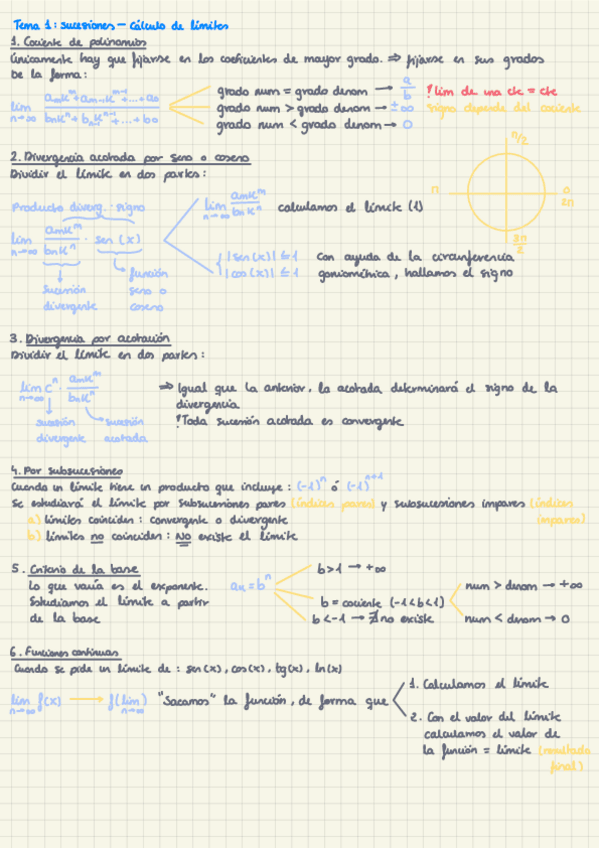 Tema 1: sucesiones — Cálculo de límites
1. Cociente de polinomios
Únicamente hay que fijarse en los coeficientes de mayor grado. ⇒ fijarse en sus grados
De la forma:
lim n→∞ (a_m k^m + a_{m-1} k^{m-1} + ... + a_0) / (b_n k^n + b_{n-1} k^{n-1} + ... + b_0)
grado num = grado denom → a/b
! lim de una cte = cte
grado num > grado denom → ±∞
signo depende del cociente
grado num < grado denom → 0
2. Divergencia acotada por seno o coseno
Dividir el límite en dos partes:
Producto diverg. · signo
lim n→∞ a_m k^m / b_n k^n · sen(x)
sucesión divergente
función seno o coseno
lim n→∞ a_m k^m / b_n k^n
calculamos el límite (1)
|sen(x)| ≤ 1
|cos(x)| ≤ 1
Con ayuda de la circunferencia
goniométrica, hallamos el signo
π/2
π
0
2π
3π/2
3. Divergencia por acotación
Dividir el límite en dos partes:
lim n→∞ c^n · a_m k^m / b_n k^n
sucesión divergente
sucesión acotada
⇒ Igual que la anterior, la acotada determinará el signo de la
divergencia
! Toda sucesión acotada es convergente
4. Por subsucesiones
Cuando un límite tiene un producto que incluye: (-1)^n ó (-1)^{n+1}
Se estudiará el límite por subsucesiones pares (índices pares) y subsucesiones impares (índices
impares)
a) límites coinciden: convergente o divergente
b) límites no coinciden: NO existe el límite
5. Criterio de la base
Lo que varía es el exponente.
Estudiamos el límite a partir
de la base
a_n = b^n
b>1 → +∞
b = cociente (-1<b<1)
num > denom → +∞
num < denom → 0
b<-1 → ∄ no existe
6. Funciones continuas
Cuando se pide un límite de: sen(x), cos(x), tg(x), ln(x)
lim n→∞ f(x) → f(lim n→∞)
"Sacamos" la función, de forma que
1. Calculamos el límite
2. Con el valor del límite
calculamos el valor de
la función = límite (resultado
final)